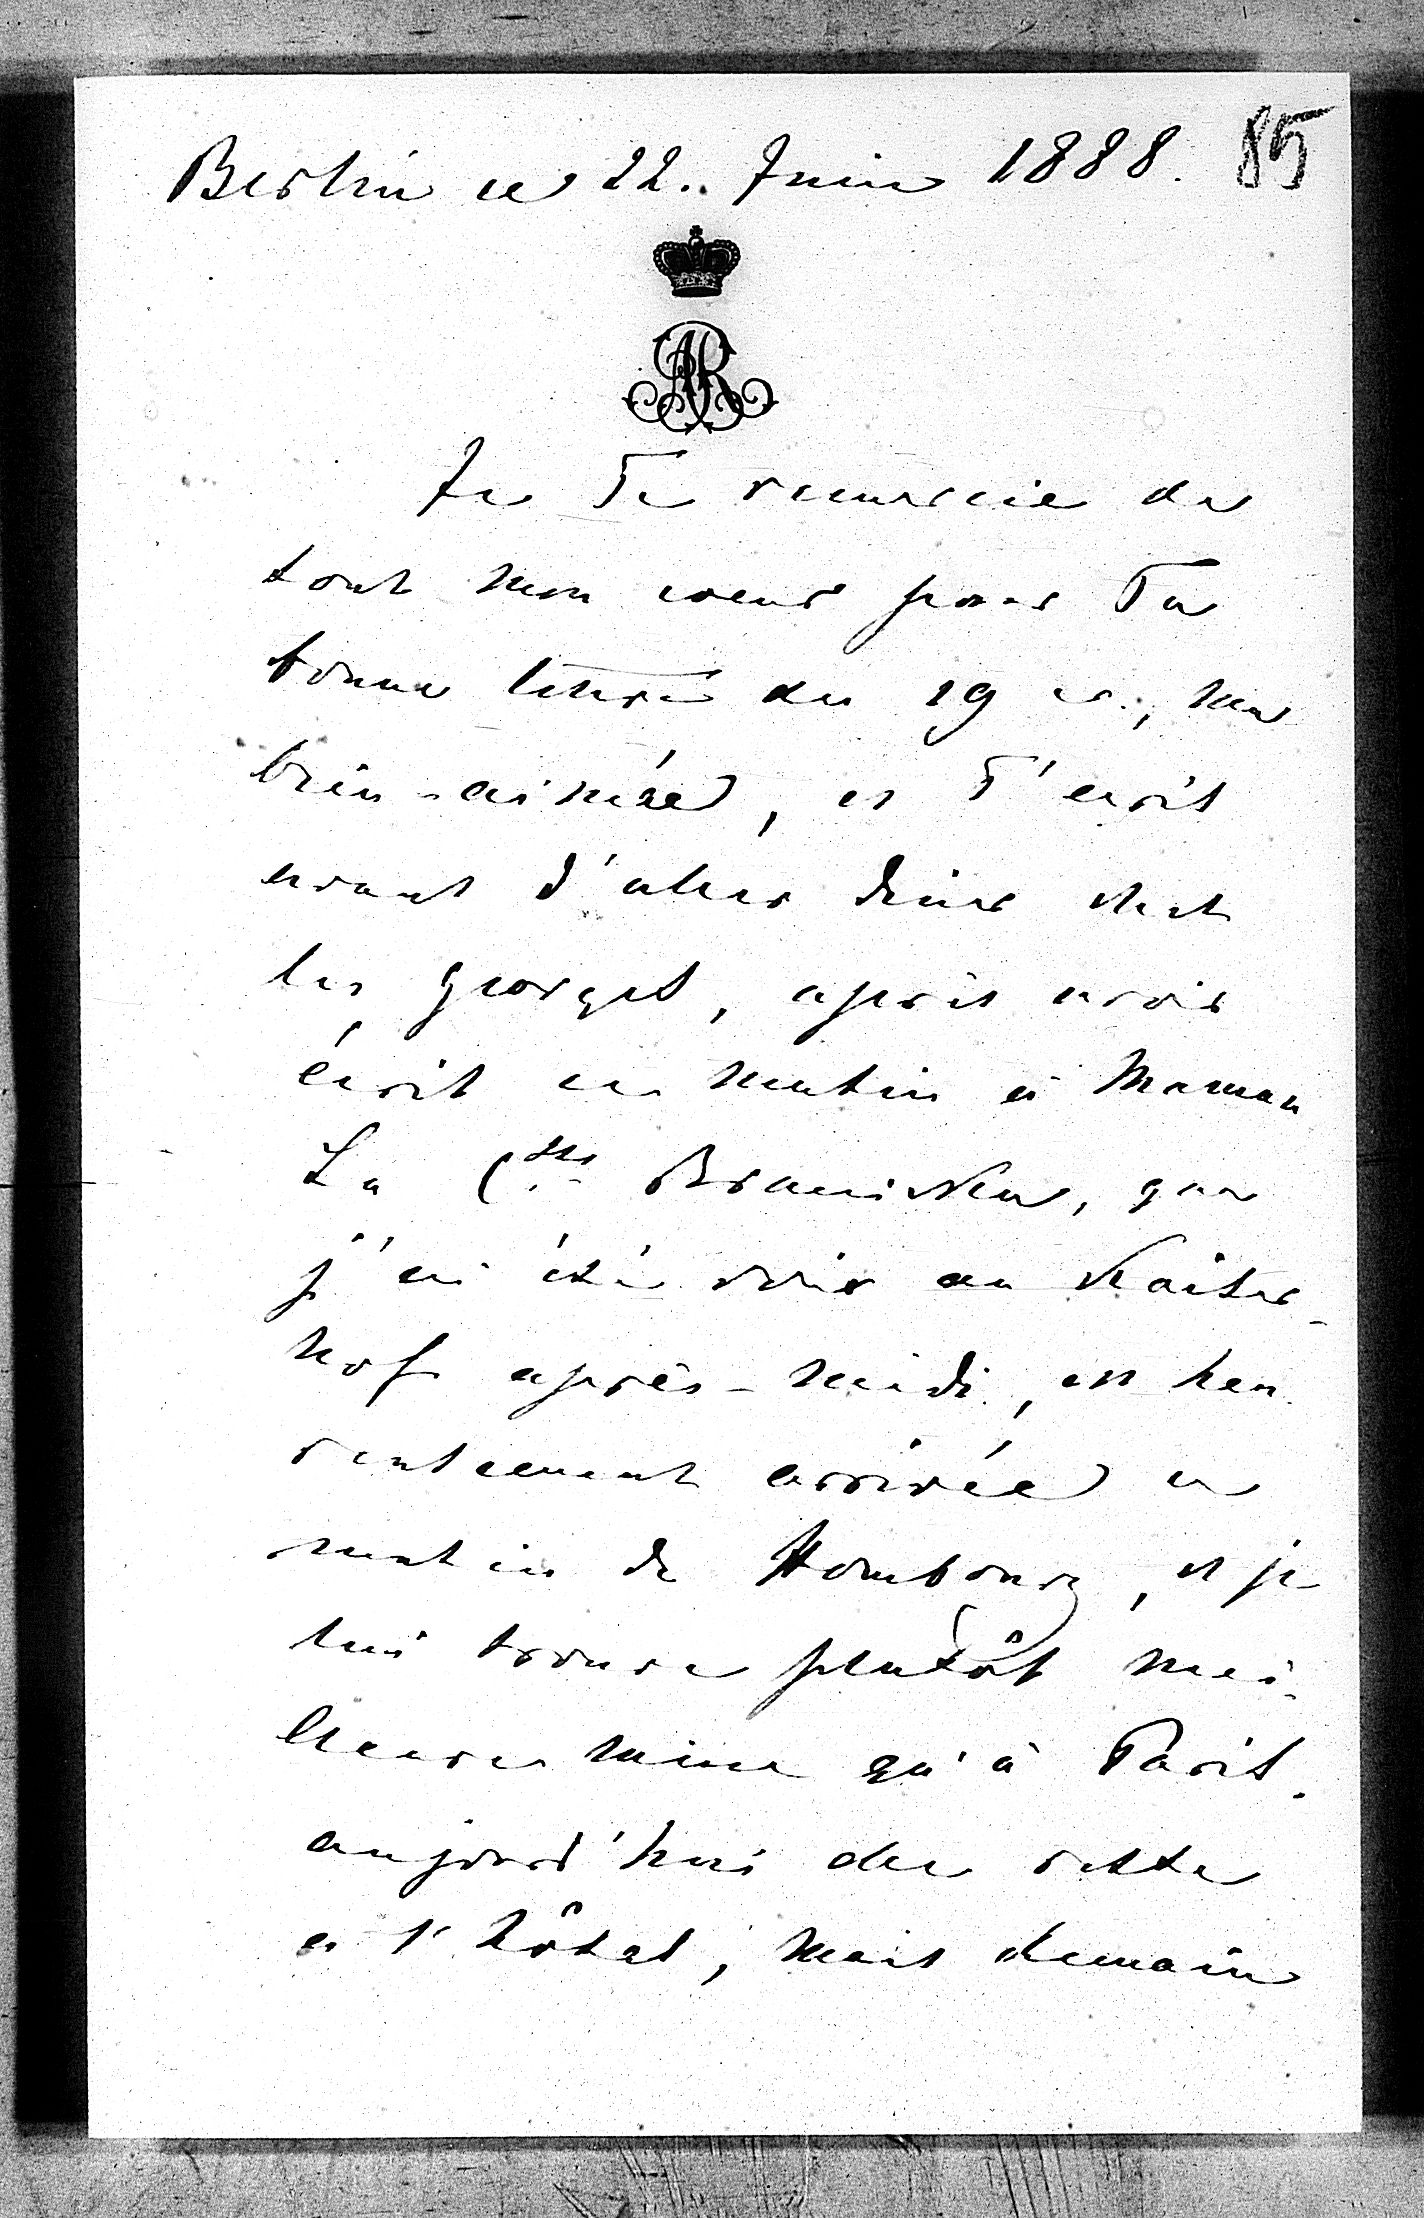 Berlin ce 22. Juin 1888. 85
AR
Je Te remercie de
tout mon coeur pour Ta
bonne lettre du 19 cr., ma
bien-aimée, et T'écris
avant d'aller diner chez
les Georges, après avoir
écrit ce matin à Maman
La Ctsse Branicka, que
j'ai été voir au Kaiser-
hof après-midi, est heu-
reusement arrivée ce
matin de Hombourg, et je
lui trouve plutôt mei-
lleure mine qu'à Paris.
aujourd'hui elle reste
a l'hôtel, mais demain